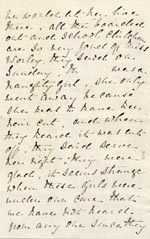 he wouldn't let her live
there, all the boarded
out and school children
are so very fond of Miss
Morley, they said on
Sunday, the
naughty girl, she only
went away because
she had to have her
hair cut, and when
they heard it was cut
off, they said serve
her right, they were
glad, it seems strange
when those girls were
under our care that
we have not heard
from any one since they